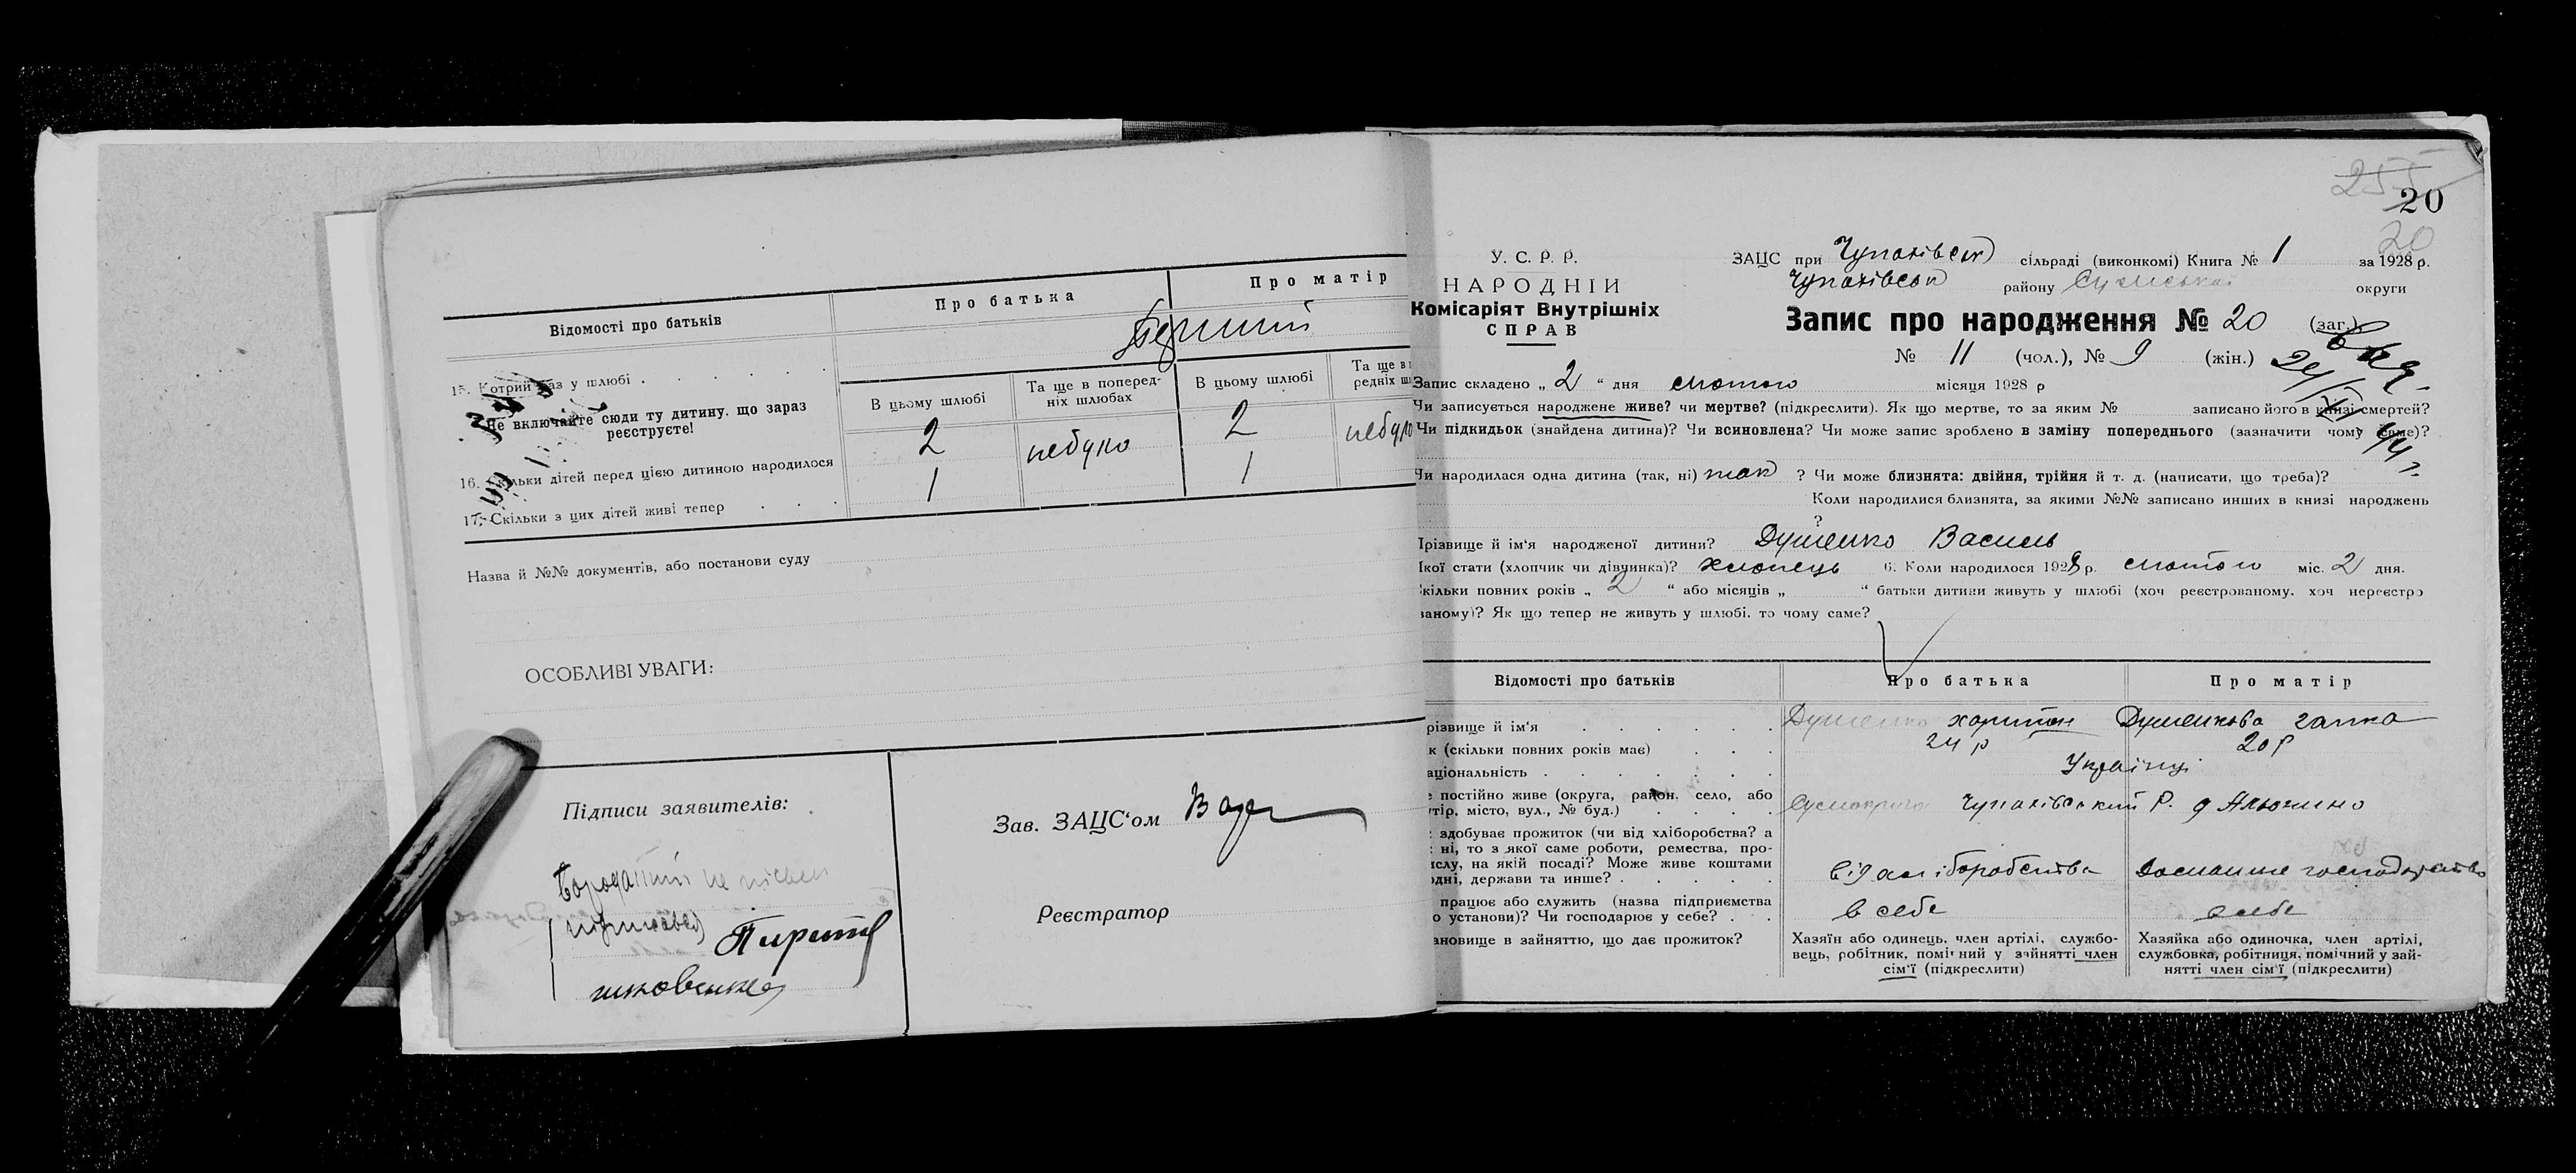 Відомості про батьків
Про батька
Про матір
15. Котрий раз у шлюбі
Перший
Не включайте сюди ту дитину, що зараз реєструєте!
В цьому шлюбі
Та ще в поперед-
ніх шлюбах
В цьому шлюбі
Та ще в
редніх
16. Скільки дітей перед цією дитиною народилося
2 небуло 2 небуло
17. Скільки з цих дітей живі тепер
1 1
Назва й №№ документів, або постанови суду
ОСОБЛИВІ УВАГИ:
Підписи заявителів:
Зав. ЗАЦС‘ом
Реєстратор
255
20
20
У. С. Р. Р.
НАРОДНІЙ
Комісаріят Внутрішніх
СПРАВ
ЗАЦС при Чупахівськ сільраді (виконкомі) Книга № 1 за 1928 р.
Чупахівськ району Сумської округи
Запис про народження № 20 (заг.)
№ 11 (чол.), № 9 (жін.)
Запис складено „ 2 “ дня лютого місяця 1928 р
Чи записується народжене живе? чи мертве? (підкреслити). Як що мертве, то за яким № записано його в книзі смертей?
Чи підкидьок (знайдена дитина)? Чи всиновлена? Чи може запис зроблено в заміну попереднього (зазначити чому саме)?
Чи народилася одна дитина (так, ні) так ? Чи може близнята: двійня, трійня й т. д. (написати, що треба)?
Коли народилися близнята, за якими №№ записано инших в книзі народжень
?
Прізвище й ім‘я народженої дитини? Душенко Василь
Якої стати (хлопчик чи дівчинка)? хлопець 6. Коли народилося 1928 р. лютого міс. 2 дня.
Скільки повних років „ 2 “ або місяців „ “ батьки дитини живуть у шлюбі (хоч реєстрованому, хоч нереєстро
ваному)? Як що тепер не живуть у шлюбі, то чому саме?
Відомості про батьків
Про батька
Про матір
різвище й ім‘я
Душенко Харитон Душенкова Галка
к (скільки повних років має)
24 р 20 р
аціональність
Українці
постійно живе (округа, район, село, або
тір, місто, вул., № буд.)
Сумокруга Чупахівський Р. д Альошино
здобуває прожиток (чи від хліборобства? а
ні, то з якої саме роботи, ремества, про-
ислу, на якій посаді? Може живе коштами
одні, держави та инше?
від хліборобства Домашнє господарство
працює або служить (назва підприємства
о установи)? Чи господарює у себе?
в себе в себе
ановище в зайняттю, що дає прожиток?
Хазяїн або одинець, член артілі, службо-
вець, робітник, помічний у зайнятті член
сім‘ї (підкреслити)
Хазяйка або одиночка, член артілі,
службовка, робітниця, помічний у зай-
нятті член сім‘ї (підкреслити)